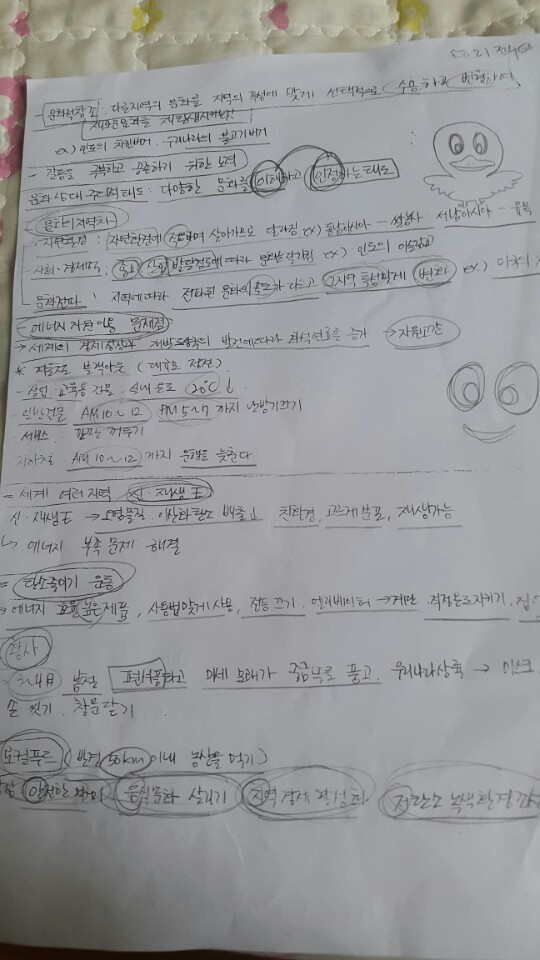 문화적창조: 다른지역의 문화를 지역의 특성에 맞게 선택적으로 수용하고 변형하여
새로운문화를 재탄생시키는것
ex) 인도의 치킨버거. 우리나라의 불고기버거
- 갈등을 극복하고 공존하기 위한 노력
문화 상대주의적 태도: 다양한 문화를 이해하고 인정하는 태도
- 문화의지역차
자연환경: 자연환경에 적응하여 살아가므로 달라짐 ex) 동남아시아 - 쌀농사 서남아시아 - 유목
사회·경제 종교 산업발달정도에따라 문화가 달라짐 ex) 인도의 이슬람교
문화전파: 지역에따라 전파된 문화의 다르고 그지역 특성맞게 변화 ex)
- 에너지 자원이용 문제점
→ 세계의 경제성장과 개발도상국의 발전에따라 화석연료를 증가 → 자원고갈
(대규모 정전)
- 교육용 건물. 실내온도 20℃↓
- 일반건물 AM10~12 PM5~7 까지 난방기끄기
- 서비스. 간판
지하철. AM10~12까지 운행을 늦춘다
= 세계 여러지역 신·재생E
신·재생E → 오염물질. 이산화탄소 배출↓ 친환경, 고르게 분포, 재생가능
↳ 에너지 부족 문제 해결
= 탄소줄이기 운동
→ 에너지 효율높은제품, 사용법맞게 사용, 전등끄기. 엘리베이터 → 계단 적정온도지키기.
황사
3~4월 봄철 편서풍타고 미세 모래가 중금속을 품고. 우리나라상륙 →
손 씻기. 창문닫기
로컬푸드 (반경 50km이내 농산물 먹기)
안전한 먹거리 음식문화 살리기 지역경제 활성화 저탄소 녹색환경